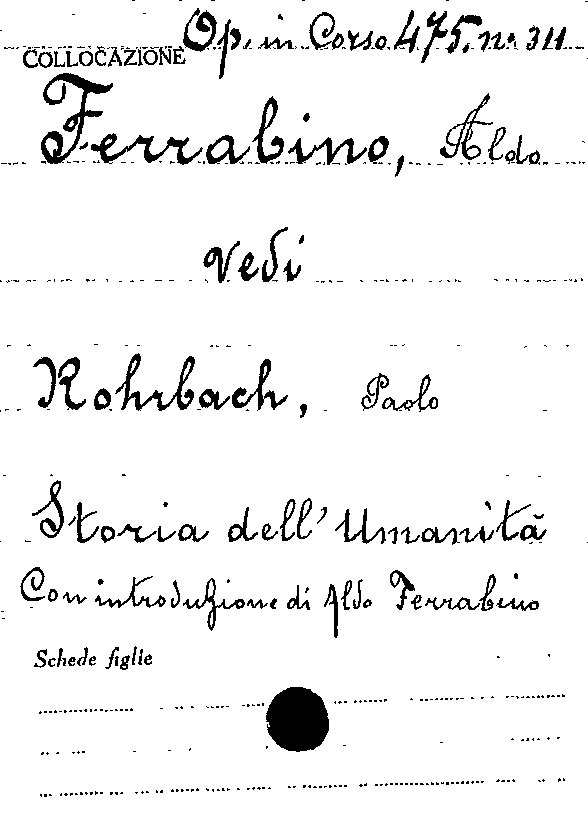 Op. in Corso 475. nº 311
COLLOCAZIONE
Ferrabino, Aldo
vedi
Rohrbach, Paolo
Storia dell'Umanità
Con introduzione di Aldo Ferrabino
Schede figlie